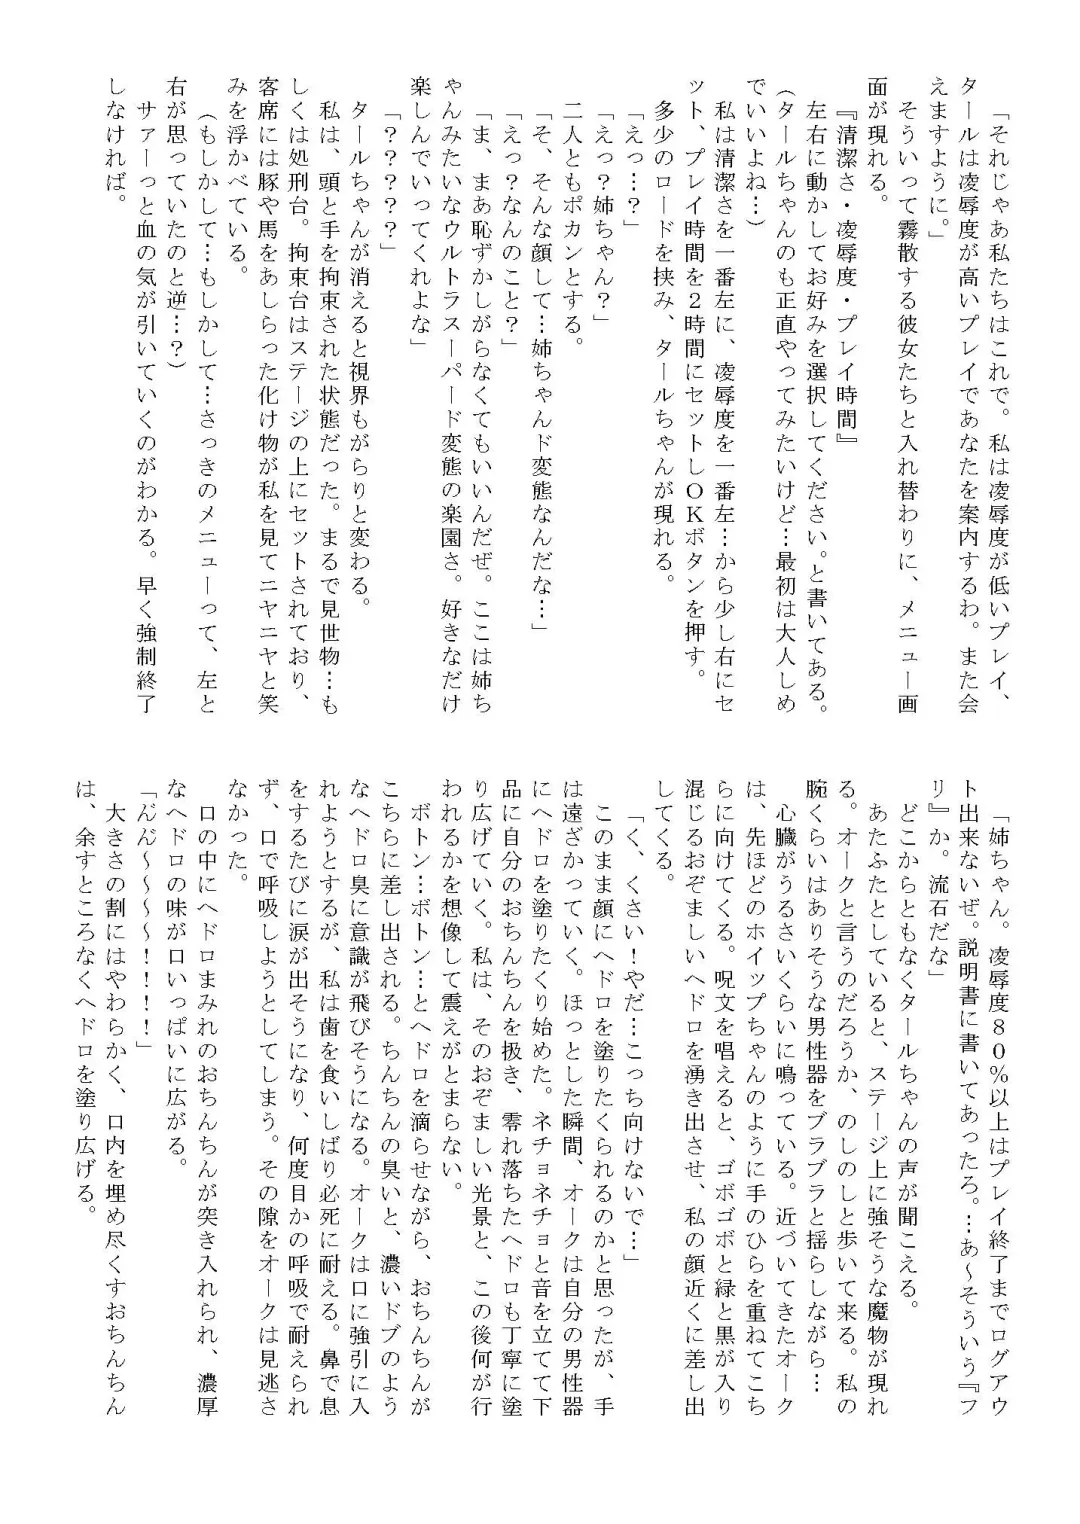 「それじゃあ私たちはこれで。私は凌辱度が低いプレイ、
タールは凌辱度が高いプレイであなたを案内するわ。また会
えますように。」
そういって霧散する彼女たちと入れ替わりに、メニュー画
面が現れる。
『清潔さ・凌辱度・プレイ時間』
左右に動かしてお好みを選択してください。と書いてある。
（タールちゃんのも正直やってみたいけど…最初は大人しめ
でいいよね…）
私は清潔さを一番左に、凌辱度を一番左…から少し右にセ
ット、プレイ時間を２時間にセットしＯＫボタンを押す。
多少のロードを挟み、タールちゃんが現れる。
「えっ…？」
「えっ？姉ちゃん？」
二人ともポカンとする。
「そ、そんな顔して…姉ちゃんド変態なんだな…」
「えっ？なんのこと？」
「ま、まあ恥ずかしがらなくてもいいんだぜ。ここは姉ち
ゃんみたいなウルトラスーパード変態の楽園さ。好きなだけ
楽しんでいってくれよな」
「？？？？？」
タールちゃんが消えると視界もがらりと変わる。
私は、頭と手を拘束された状態だった。まるで見世物…も
しくは処刑台。拘束台はステージの上にセットされており、
客席には豚や馬をあしらった化け物が私を見てニヤニヤと笑
みを浮かべている。
（もしかして…もしかして…さっきのメニューって、左と
右が思っていたのと逆…？）
サァーっと血の気が引いていくのがわかる。早く強制終了
しなければ。
「姉ちゃん。凌辱度８０％以上はプレイ終了までログアウ
ト出来ないぜ。説明書に書いてあったろ。…あ～そういう『フ
リ』か。流石だな」
どこからともなくタールちゃんの声が聞こえる。
あたふたとしていると、ステージ上に強そうな魔物が現れ
る。オークと言うのだろうか、のしのしと歩いて来る。私の
腕くらいはありそうな男性器をブラブラと揺らしながら…
心臓がうるさいくらいに鳴っている。近づいてきたオーク
は、先ほどのホイップちゃんのように手のひらを重ねてこち
らに向けてくる。呪文を唱えると、ゴボゴボと緑と黒が入り
混じるおぞましいヘドロを湧き出させ、私の顔近くに差し出
してくる。
「く、くさい！やだ…こっち向けないで…」
このまま顔にヘドロを塗りたくられるのかと思ったが、手
は遠ざかっていく。ほっとした瞬間、オークは自分の男性器
にヘドロを塗りたくり始めた。ネチョネチョと音を立てて下
品に自分のおちんちんを扱き、零れ落ちたヘドロも丁寧に塗
り広げていく。私は、そのおぞましい光景と、この後何が行
われるかを想像して震えがとまらない。
ボトン…ボトン…とヘドロを滴らせながら、おちんちんが
こちらに差し出される。ちんちんの臭いと、濃いドブのよう
なヘドロ臭に意識が飛びそうになる。オークは口に強引に入
れようとするが、私は歯を食いしばり必死に耐える。鼻で息
をするたびに涙が出そうになり、何度目かの呼吸で耐えられ
ず、口で呼吸しようとしてしまう。その隙をオークは見逃さ
なかった。
口の中にヘドロまみれのおちんちんが突き入れられ、濃厚
なヘドロの味が口いっぱいに広がる。
「んﾞんﾞ～～～～！！！！」
大きさの割にはやわらかく、口内を埋め尽くすおちんちん
は、余すところなくヘドロを塗り広げる。